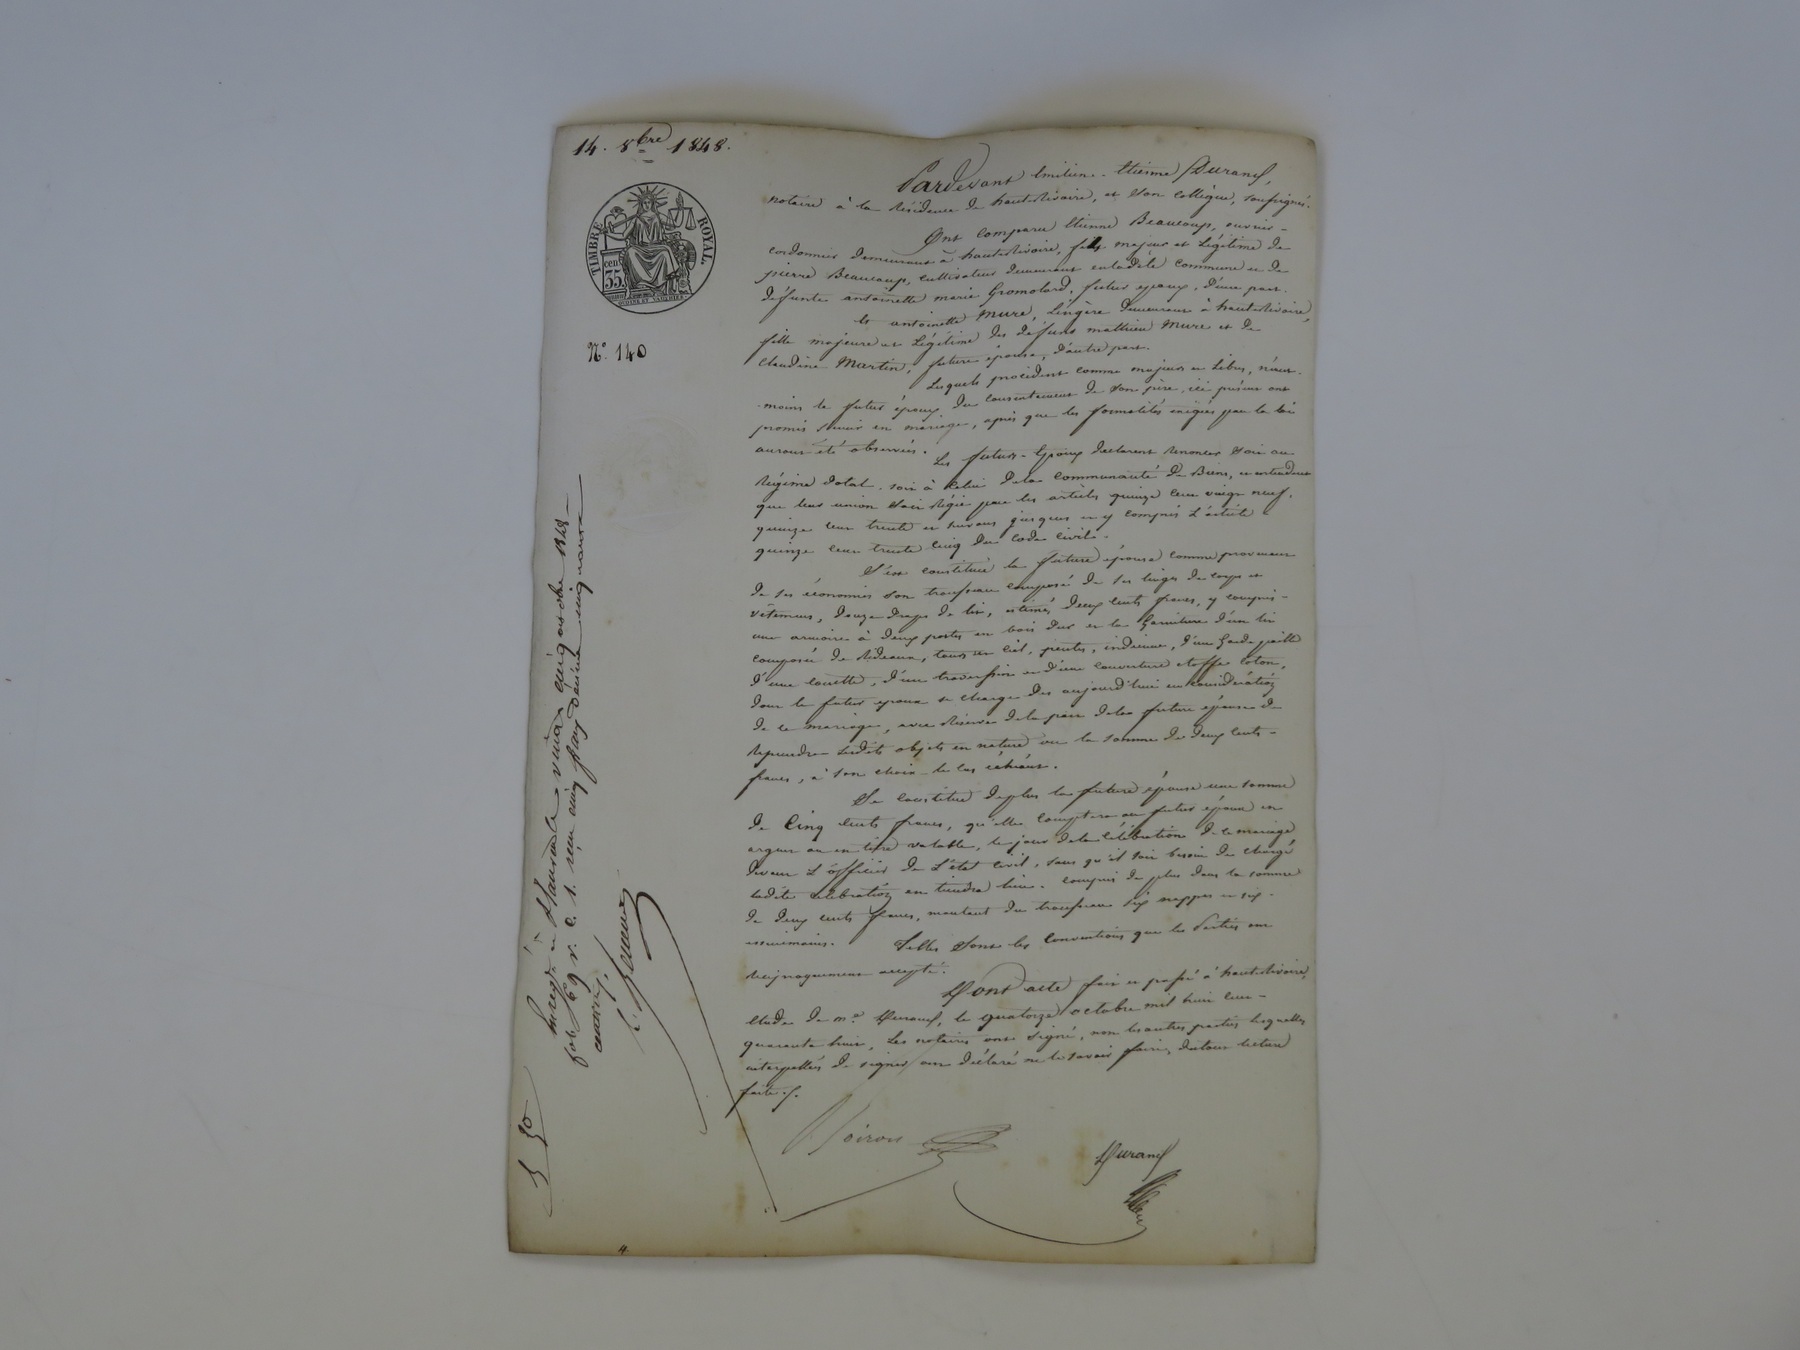 14. 8bre 1848.
TIMBRE ROYAL.
cen. 35.
N.º 140
Pardevant Emilien-Etienne Durand,
notaire à la Résidence de hauterivoire, et son collègue, soussignés.
Ont comparu Etienne Beaucoup, ouvrier-
cordonnier demeurant à hauterivoire, fils majeur et légitime de
pierre Beaucoup, cultivateur demeurant en ladite commune et de
défunte antoinette marie Gromolard, futur époux, d'une part.
Et antoinette Mure, Lingère demeurant à hauterivoire,
fille majeure et Légitime des défunts mathieu Mure et de
Claudine Martin, future épouse, d'autre part.
Lesquels procédant comme majeurs et libres, néan-
-moins le futur époux du consentement de son père, ici présent ont
promis s'unir en mariage, après que les formalités exigées par la loi
auront été observées.
Les futurs-Epoux déclarent renoncer soit au
Régime dotal, soit à celui de la communauté de Biens, et entendent
que leur union soit Régie par les articles quinze cent vingt neuf,
quinze cent trente et suivans jusques et y compris L'article
quinze cent trente cinq du Code civil.
S'est constitué la future épouse comme provenant
de ses économies son trousseau composé de ses linges de corps et
vêtemens, douze draps de lit, estimés deux cents francs, y compris-
une armoire à deux portes en bois dur et la Garniture d'un lit
composée de Rideaux, tours et ciel, pentes, indienne, d'une Garde paille
d'une couette, d'un traversin et d'une couverture étoffe coton,
dont le futur époux se charge dès aujourd'hui en considération
de ce mariage, avec Réserve de la part de la future épouse de
Reprendre lesdits objets en nature ou la somme de deux cents-
francs, à son choix le cas échéant.
Se constitue de plus la future épouse une somme
de Cinq Cents francs, qu'elle comptera au futur époux en
argent ou en titre valable, le jour de la célébration de ce mariage
devant L'officier de L'état civil, sans qu'il soit besoin de chargé
ladite célébration en tiendra lieu. Compris de plus dans la somme
de deux cents francs, montant du trousseau six nappes et six-
essuimains.
Telles sont les Conventions que les Parties ont
Réciproquement accepté.
Dont acte fait et passé à hauterivoire,
Etude de me Durand, le quatorze octobre mil huit cent-
quarante huit, Les notaires ont signé, non les autres parties lesquelles
interpellées de signer ont déclaré ne le savoir faire, du tout lecture
faite.
Voiron
Durand
Enregé à St Laurent le vingt cinq octobre 1848
fol: 69 r. c. 1. reçu cinq francs décime cinquante
centimes.
5 50
4